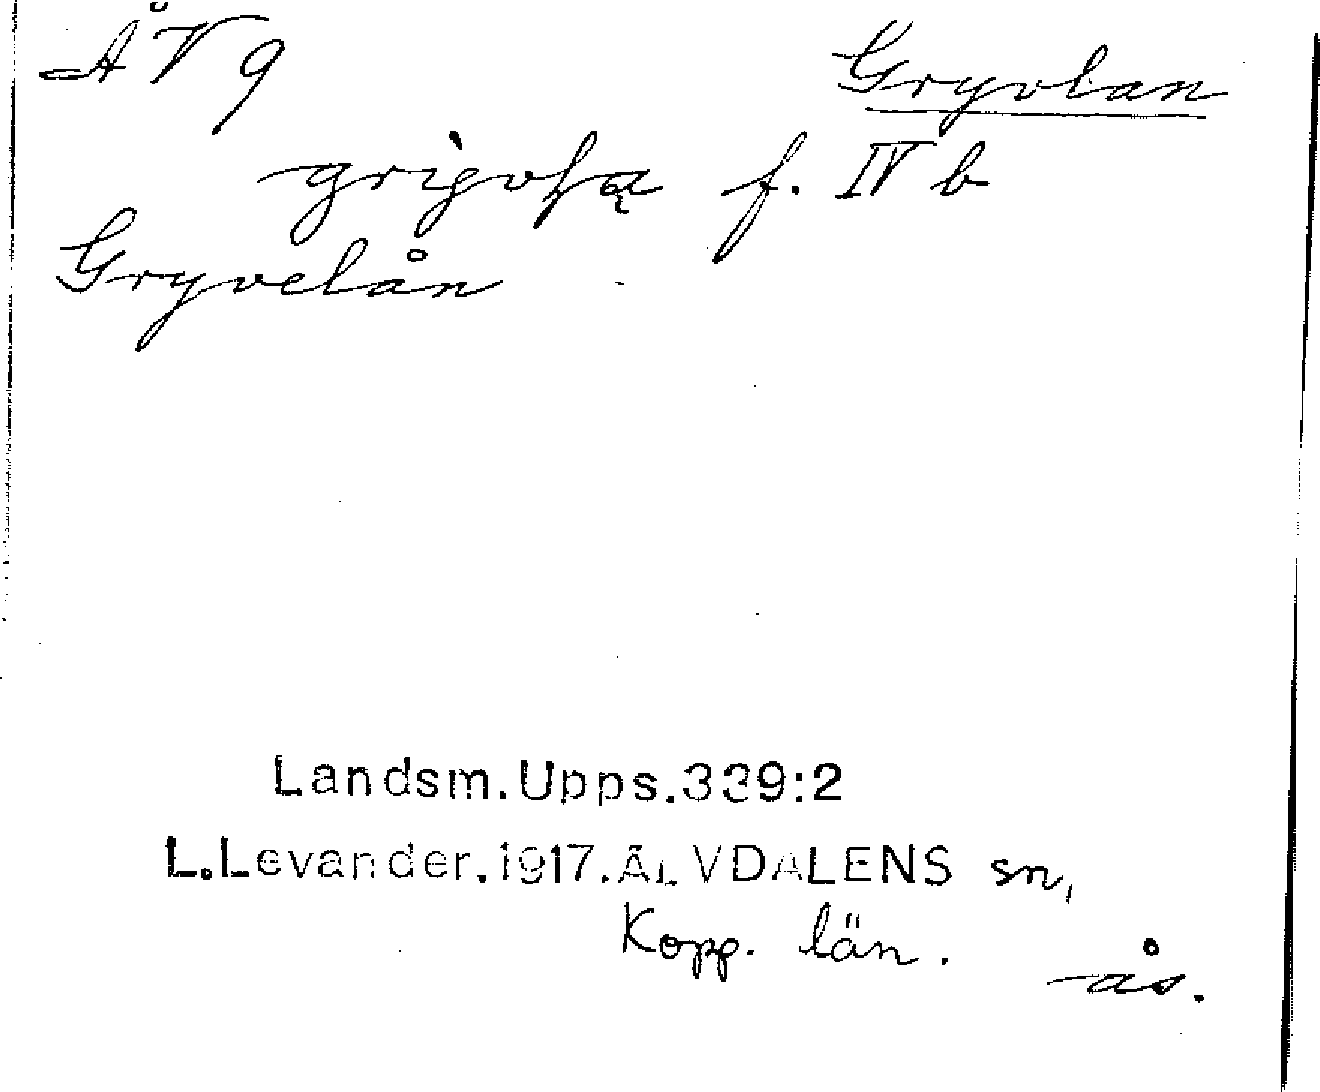 ÅV 9
Gryvlan
f. IV b
Gryvelån
Landsm.Upps.339:2
L.Levander.1917.ÄLVDALENS sn,
Kopp. län.
ås.